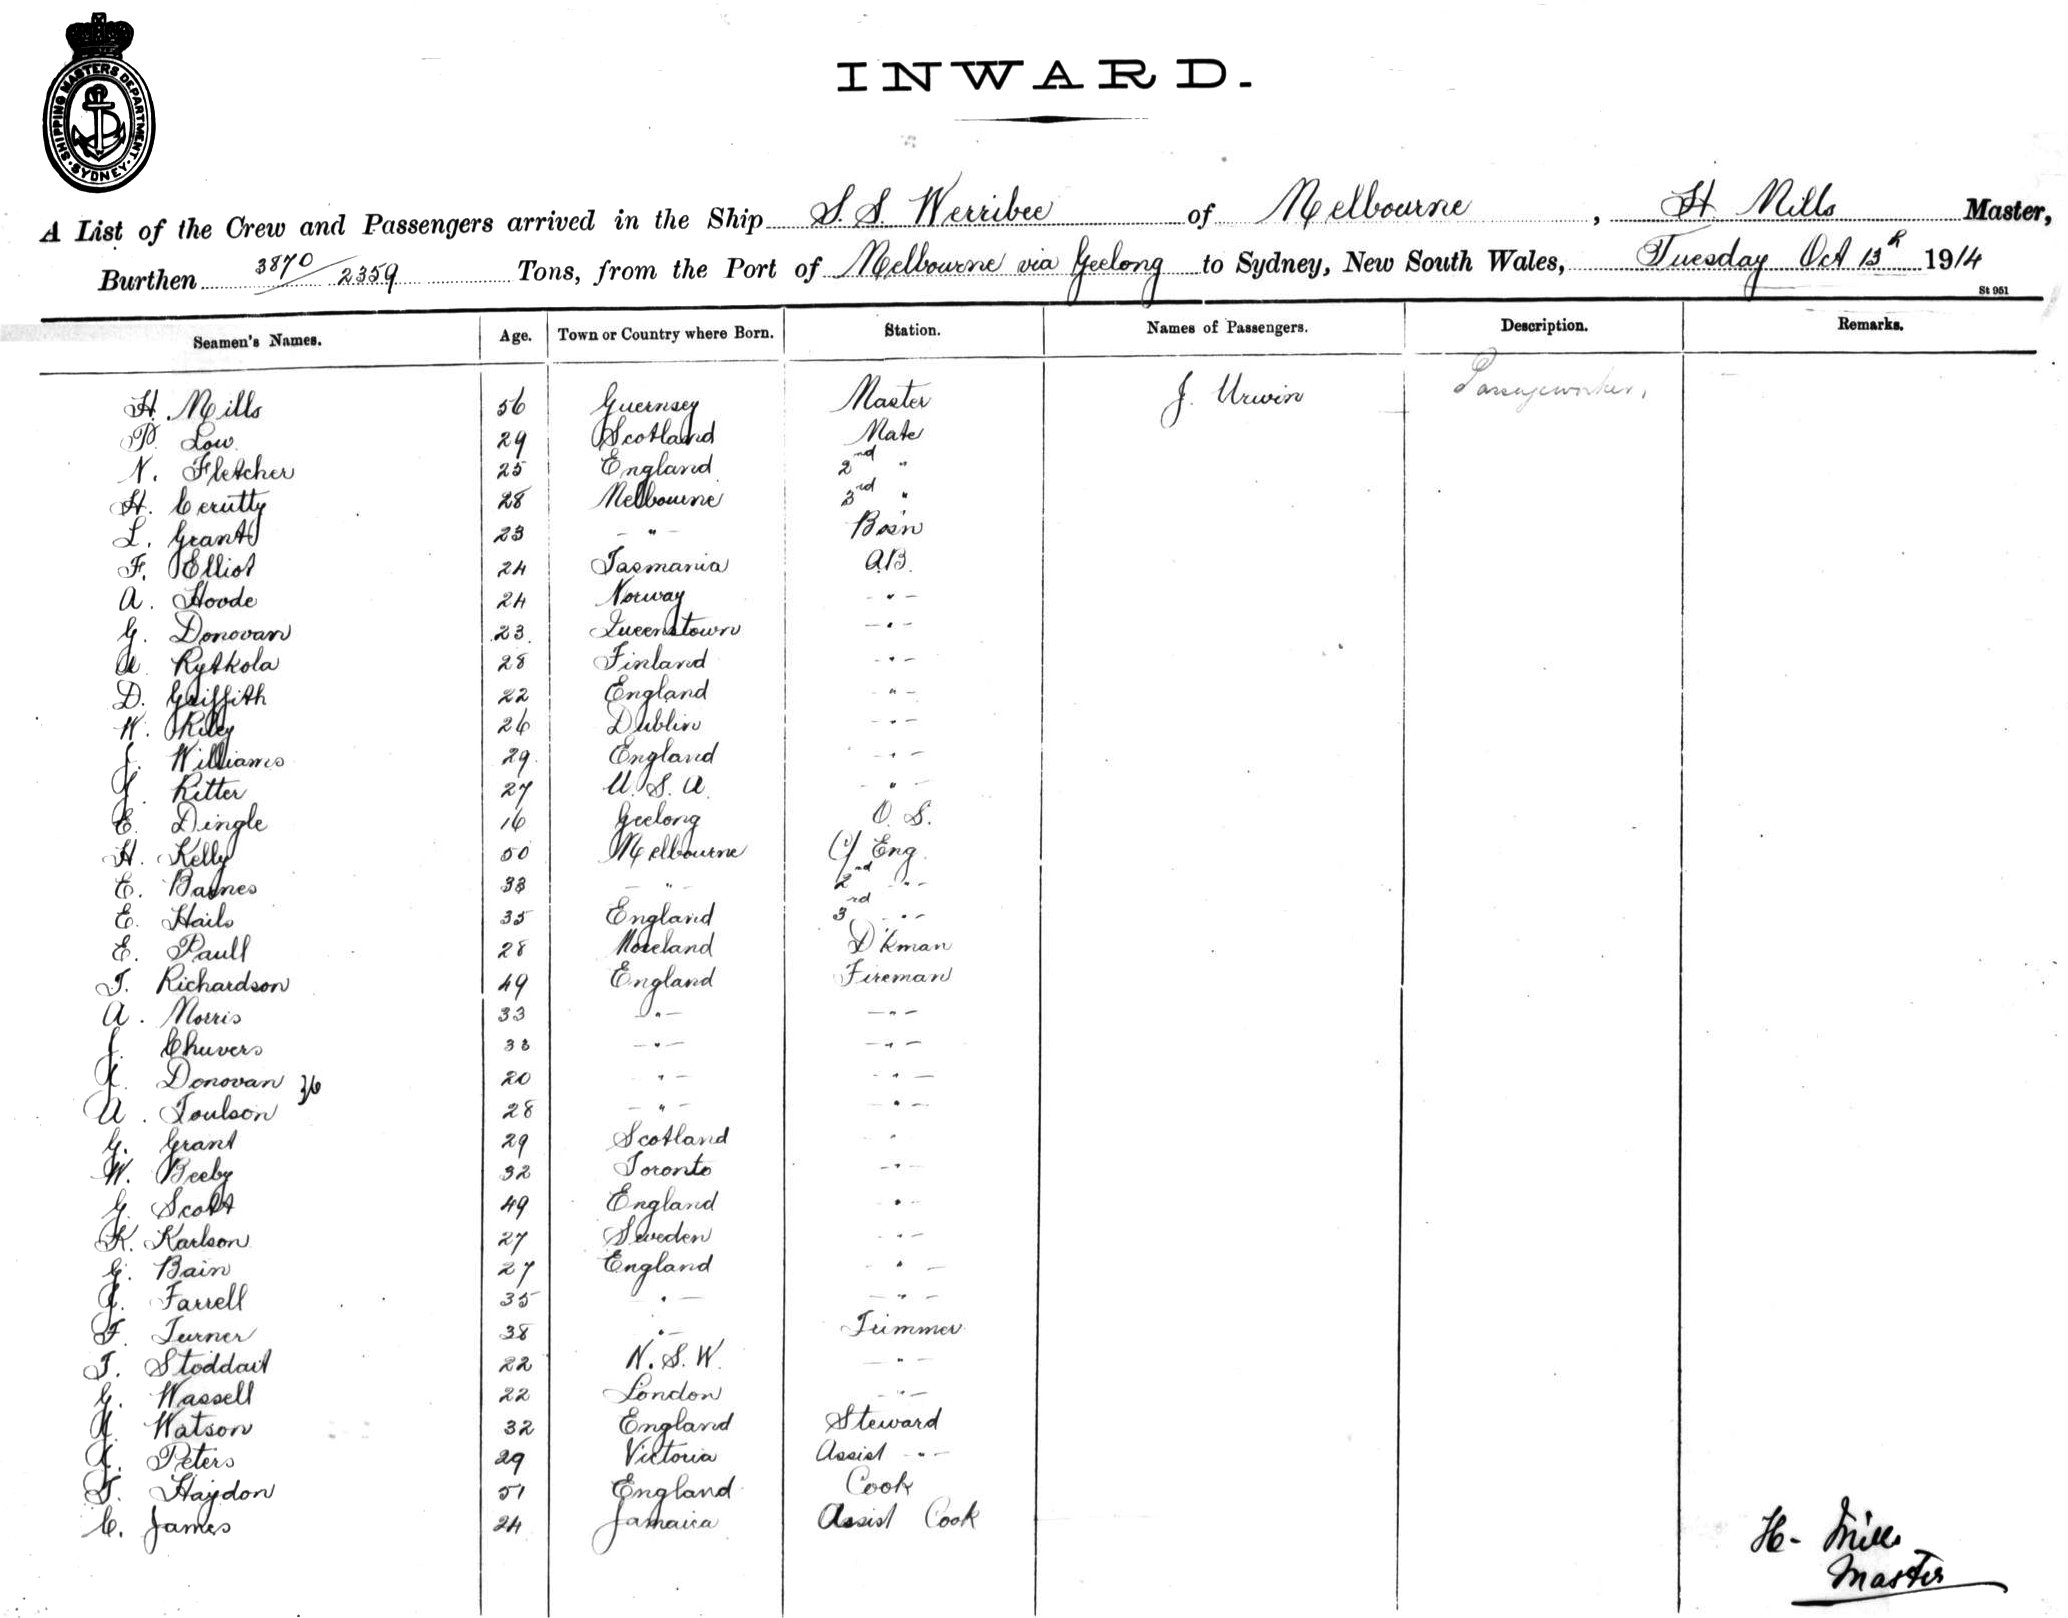 SHIPPING MASTERS DEPARTMENT · SYDNEY
INWARD.
A List of the Crew and Passengers arrived in the Ship S. S. Werribee of Melbourne, H Mills Master,
Burthen 3870/2359 Tons, from the Port of Melbourne via Geelong to Sydney, New South Wales, Tuesday Oct 13th 1914
St 951
Seamen's Names. Age. Town or Country where Born. Station. Names of Passengers. Description. Remarks.
H. Mills 56 Guernsey Master J. Urwin Passageworker.
P. Low 29 Scotland Mate
N. Fletcher 25 England 2nd "
H. Cerutty 28 Melbourne 3rd "
L. Grant 23 - " - Bos'n
F. Elliot 24 Tasmania A.B.
A. Hovde 24 Norway - " -
G. Donovan 23 Queenstown - " -
A. Rytkola 28 Finland - " -
D. Griffith 22 England - " -
W. Riley 26 Dublin - " -
J. Williams 29 England - " -
J. Ritter 27 U. S. A. - " -
E. Dingle 16 Geelong O. S.
H. Kelly 50 Melbourne (1) Eng.
E. Barnes 33 - " - 2nd - " -
E. Hails 35 England 3rd - " -
E. Paull 28 Moreland D'kman
T. Richardson 49 England Fireman
A. Morris 33 - " - - " -
J. Chuvers 33 - " - - " -
J. Donovan 20 - " - - " -
36
A. Toulson 28 - " - - " -
G. Grant 29 Scotland "
W. Beeby 32 Toronto - " -
G. Scott 49 England - " -
K. Karlson 27 Sweden - " -
G. Bain 27 England - " -
J. Farrell 35 " - - " -
F. Turner 38 " - Trimmer
T. Stoddart 22 N. S. W. - " -
G. Wassell 22 London - " -
A. Watson 32 England Steward
A. Peters 29 Victoria Assist - " -
T. Haydon 51 England Cook
C. James 24 Jamaica Assist Cook
H. Mills
Master